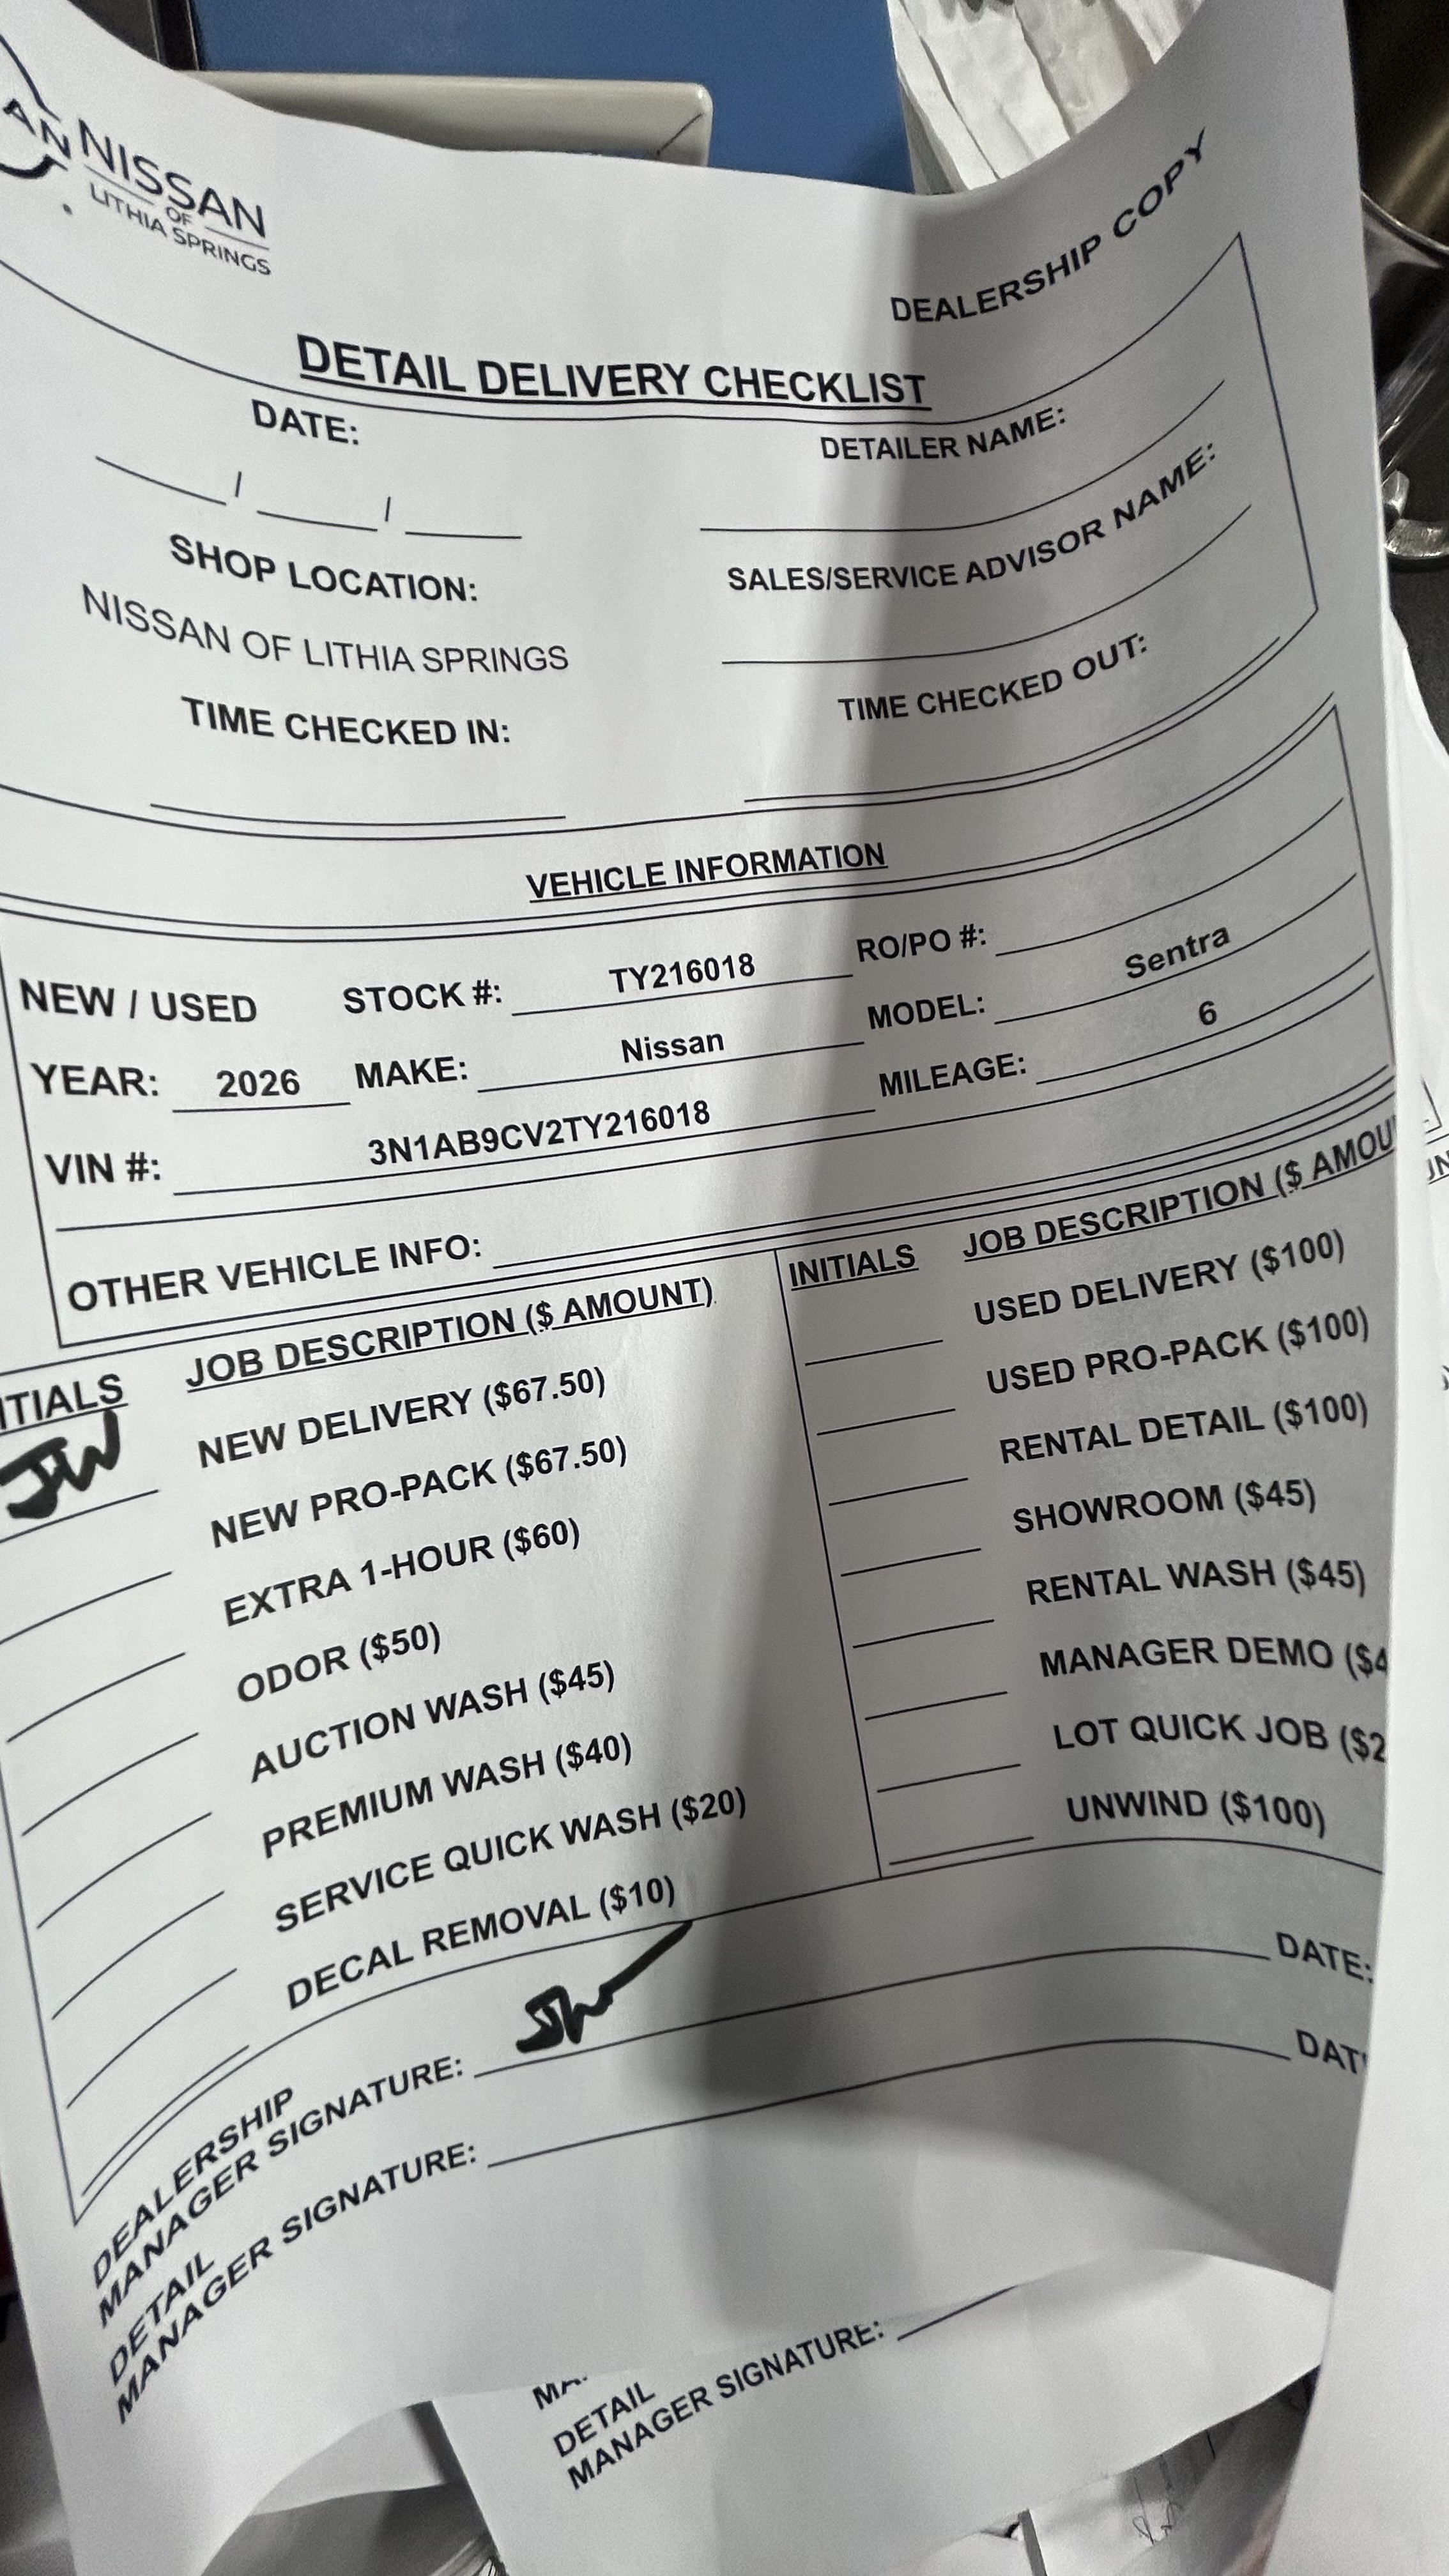 AN NISSAN
OF
LITHIA SPRINGS
DEALERSHIP COPY
DETAIL DELIVERY CHECKLIST
DATE:
DETAILER NAME:
/ /
SHOP LOCATION:
SALES/SERVICE ADVISOR NAME:
NISSAN OF LITHIA SPRINGS
TIME CHECKED IN:
TIME CHECKED OUT:
VEHICLE INFORMATION
NEW / USED STOCK #: TY216018 RO/PO #:
YEAR: 2026 MAKE: Nissan MODEL: Sentra
VIN #: 3N1AB9CV2TY216018 MILEAGE: 6
OTHER VEHICLE INFO:
ITIALS JOB DESCRIPTION ($ AMOUNT)
JW NEW DELIVERY ($67.50)
NEW PRO-PACK ($67.50)
EXTRA 1-HOUR ($60)
ODOR ($50)
AUCTION WASH ($45)
PREMIUM WASH ($40)
SERVICE QUICK WASH ($20)
DECAL REMOVAL ($10)
INITIALS JOB DESCRIPTION ($ AMOU
USED DELIVERY ($100)
USED PRO-PACK ($100)
RENTAL DETAIL ($100)
SHOWROOM ($45)
RENTAL WASH ($45)
MANAGER DEMO ($4
LOT QUICK JOB ($2
UNWIND ($100)
DEALERSHIP
MANAGER SIGNATURE: DATE:
DETAIL
MANAGER SIGNATURE: DAT
DETAIL
MANAGER SIGNATURE: